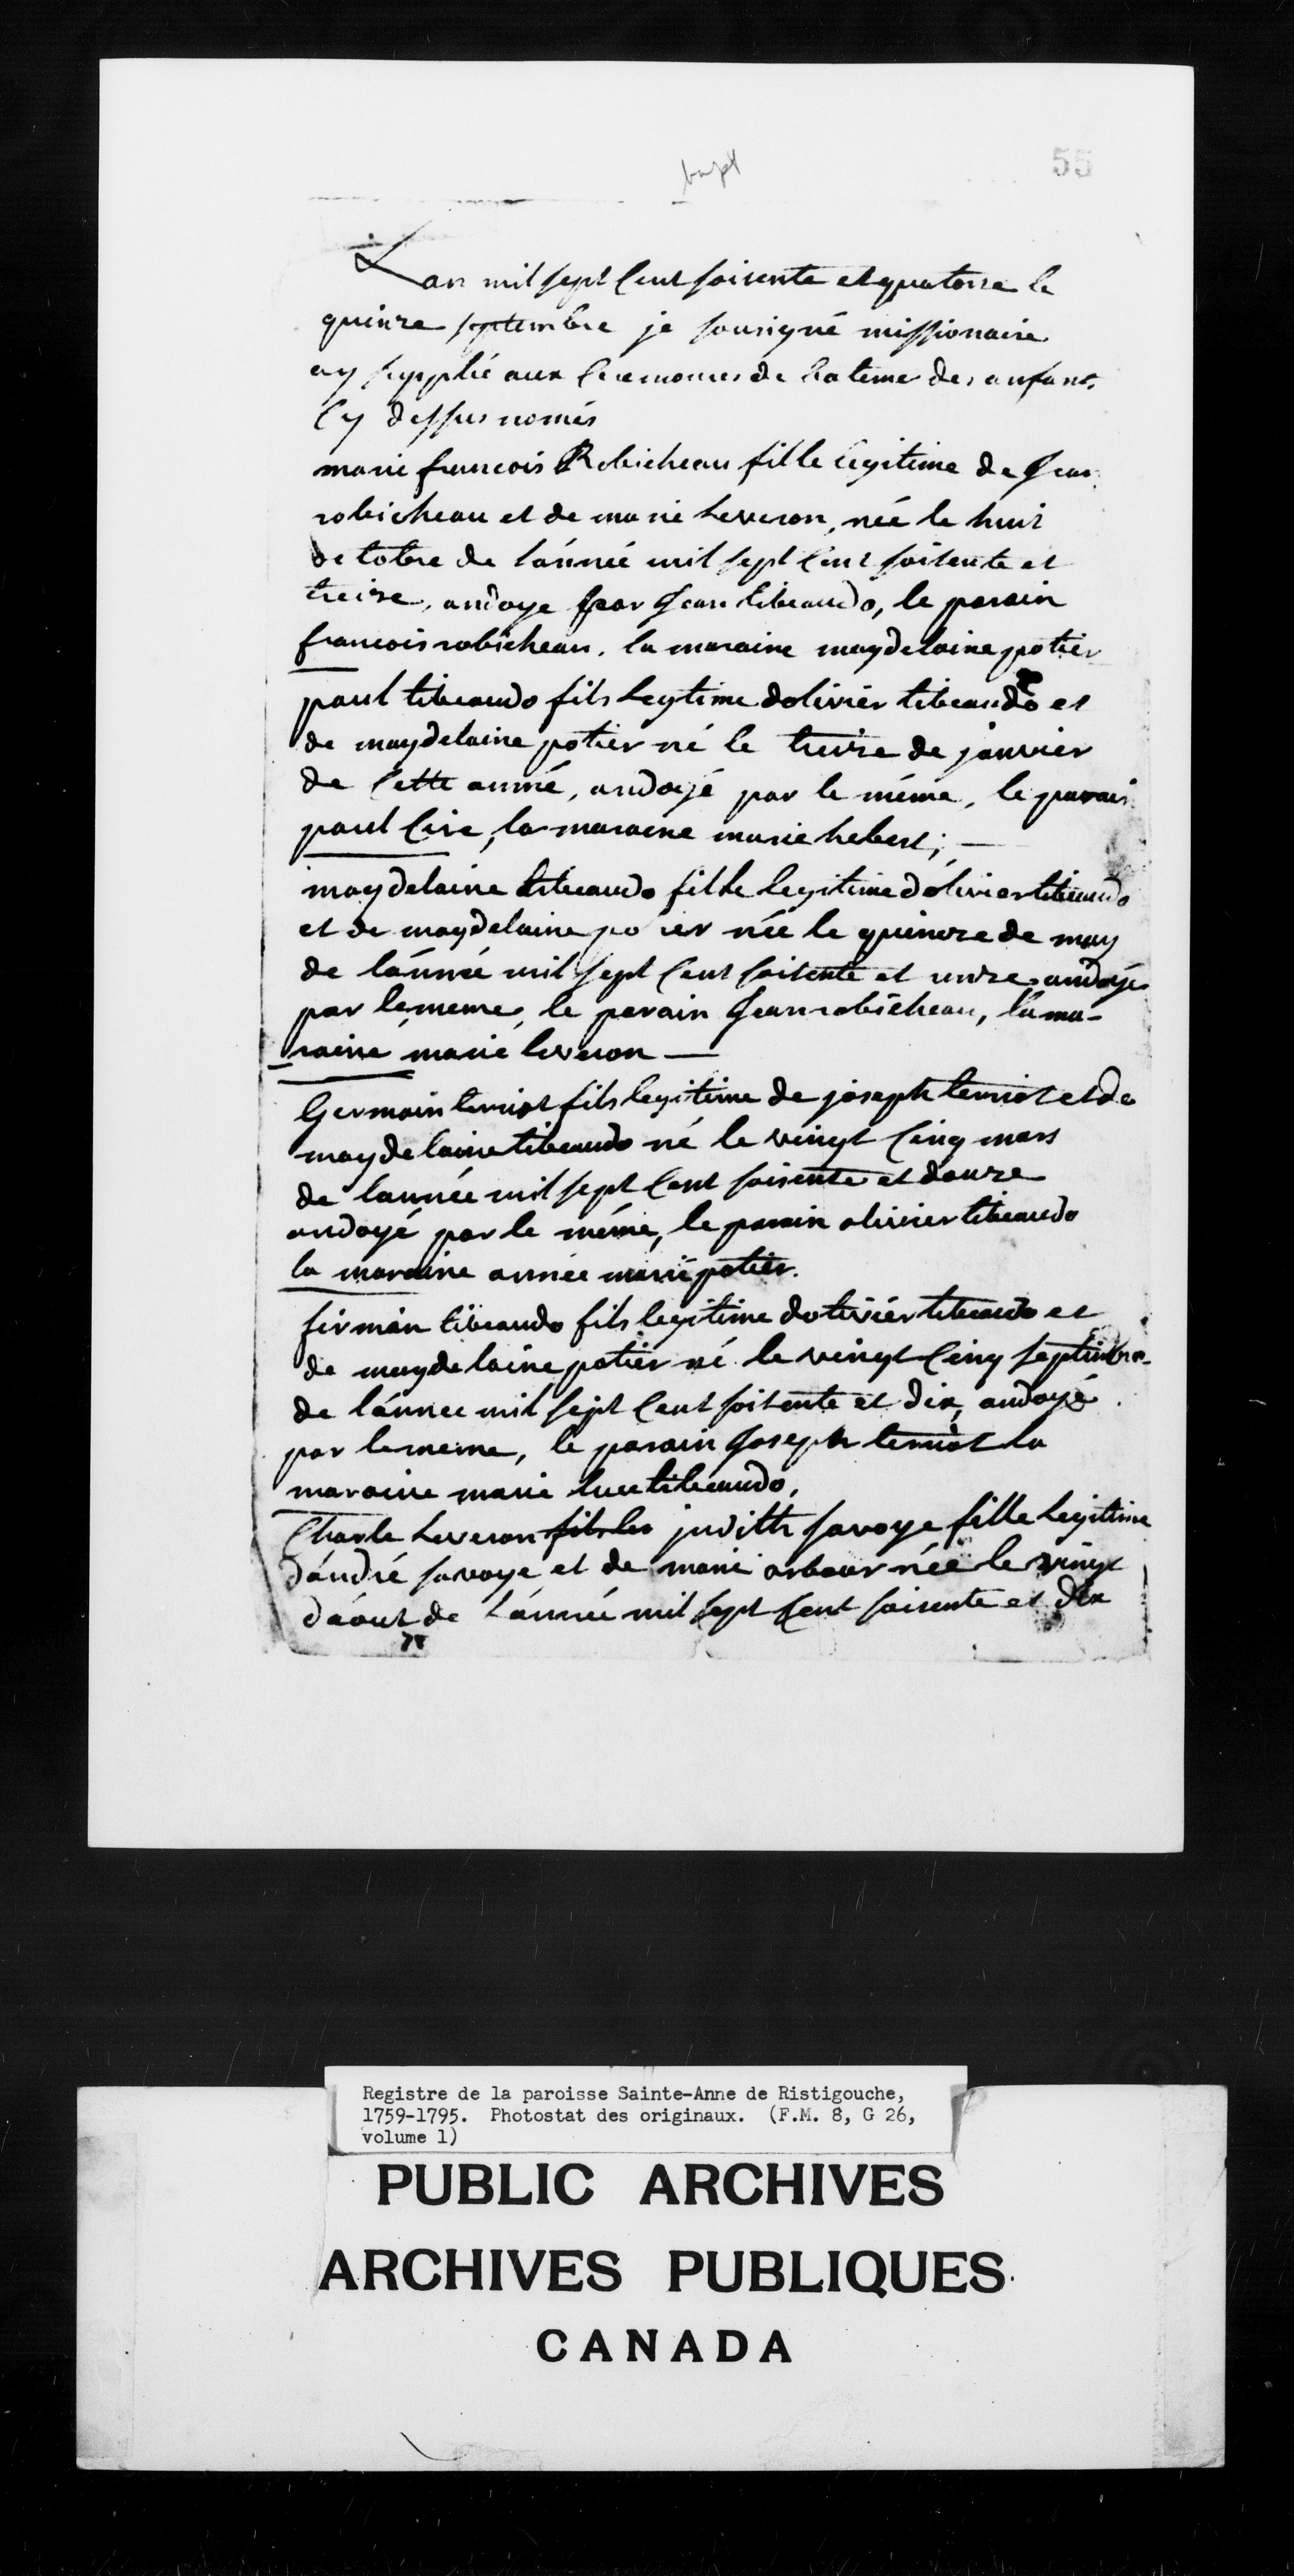 bapt
55
Lan mil sept Cent soisente et quatorse le
quinze septembre je sousigné missionaire
ay supplié aux Ceremonies de bateme des anfans
Cy dessus només
marie francois Robicheau fille legitime de Jean
robicheau et de marie Leveron, née le huit
doctobre de lánnée mil sept Cent soisente et
treise, andoye par Jean tibeaudo, le parain
francois robicheau. la maraine magdelaine potier
paul tibeaudo fils Legtime dolivier tibeaudo et
de magdelaine potier né le treize de janvier
de Cette anné, andoyé par le méme, le parain
paul Cire, la maraene marie hebert; —
magdelaine tibeaudo fille legitime dólivier tibeaudo
et de magdelaine po ier née le quinoze de may
de lánnée mil sept Cent soisente et unze andoyé
par lememe, le parain Jean robicheau, la ma-
raine marie leveron —
Germain terriot fils legitime de joseph terriot et de
magdelaine tibeaudo né le vingt Cinq mars
de lannée mil sept Cent soisente et douze
andoyé par le méme, le parain olivier tibeaudo
la maraine année marie potier.
firman tibeaudo fils legitime dolivier tibeaudo et
de magdelaine potier né le vingt Cinq septembre
de lánnee mil sept Cent soisente et dix, andoyé
par lememe, le parain Joseph terriot la
maraine marie luce tibeaudo,
Charle Leveron fils les judith savoye fille Legitime
dándré savoye et de marie arbour née le vingt
dáout de lánnée mil sept Cent soisente et dix
Registre de la paroisse Sainte-Anne de Ristigouche,
1759-1795. Photostat des originaux. (F.M. 8, G 26,
volume 1)
PUBLIC ARCHIVES
ARCHIVES PUBLIQUES
CANADA